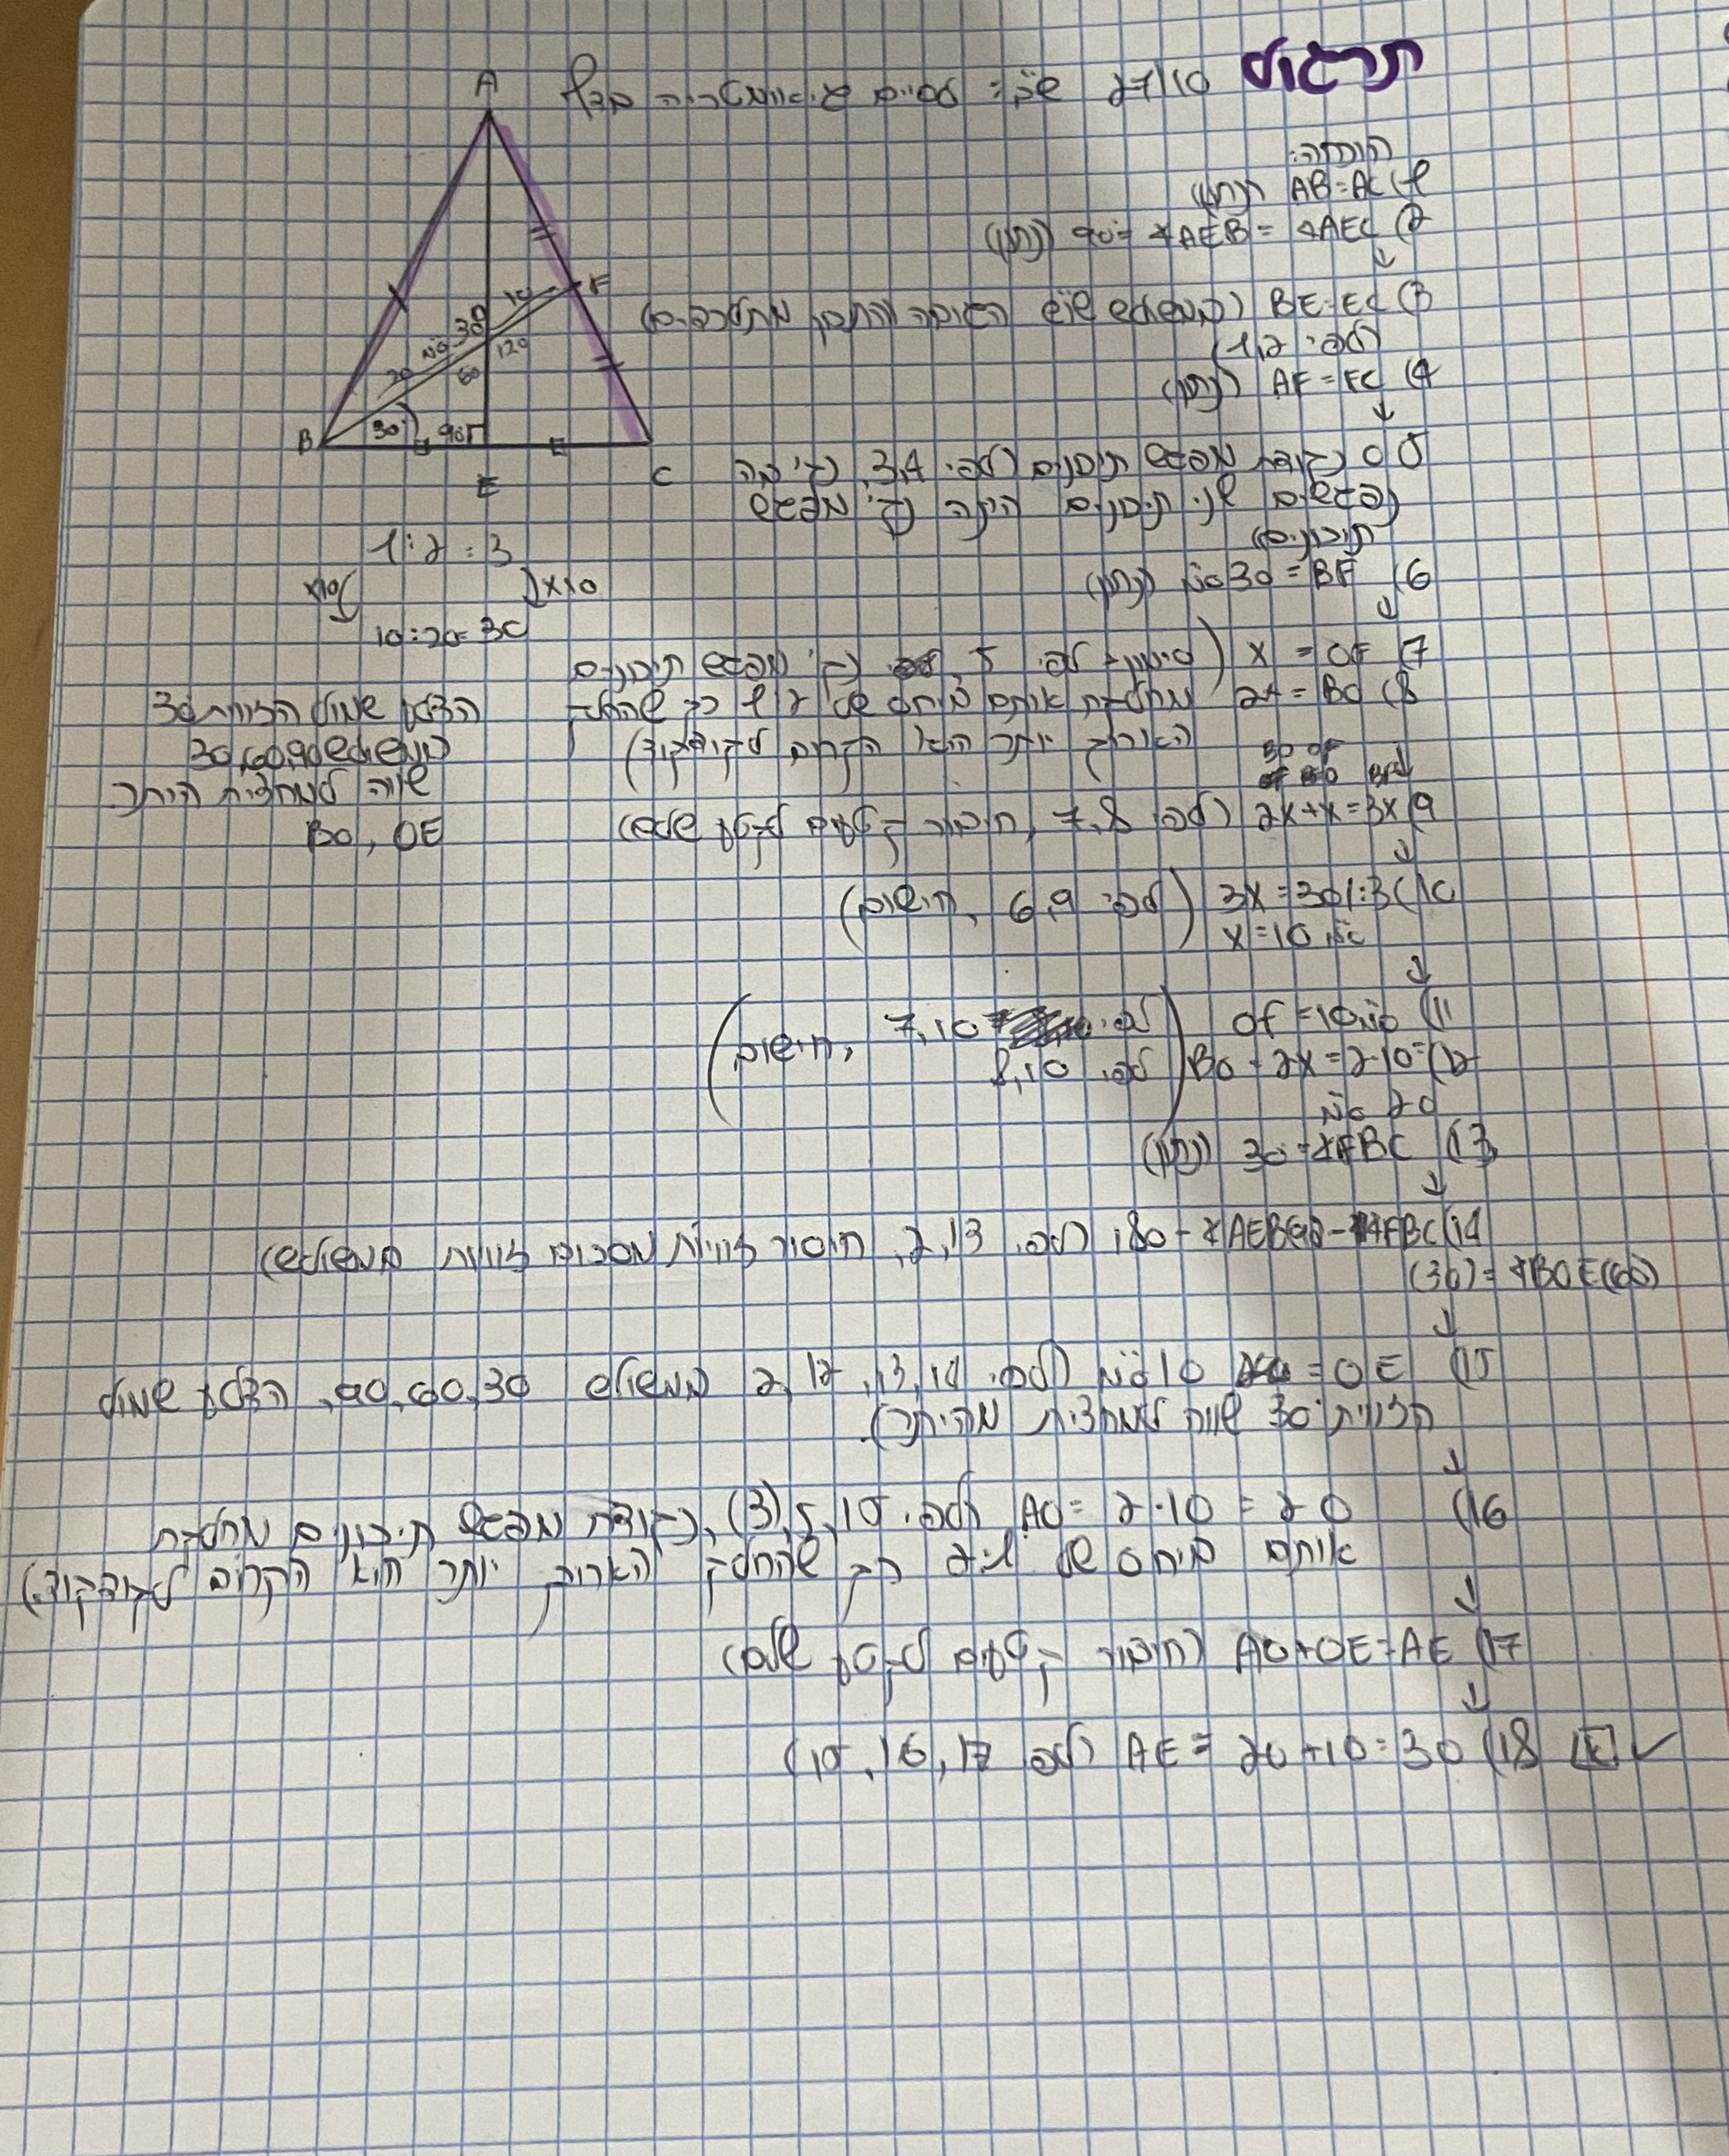 תרגול 27/10 שב: לסיים גיאומטריה מדף
הוכחה:
1) AB=AC (נתון)
2) ∢AEC = ∢AEB = 90° (נתון)
↓
3) BE=EC (במשולש שו"ש הגובה והתיכון מתלכדים)
(לפי 1,2)
4) AF=FC (נתון)
↓
5) O נקודת מפגש תיכונים (לפי 3,4, נק' בה
נפגשים שני תיכונים הינה נק' מפגש
תיכונים)
6) BF = 30 ס"מ (נתון)
↓
7) OF = x (סימון+ לפי 5, נק' מפגש תיכונים
8) BO = 2x מחלקת אותם ביחס של 1:2 כך שהחלק
הארוך יותר הוא הקרוב לקודקוד)
BO OF BF↓
9) 2x+x=3x (לפי 7,8, חיבור קטעים לקטע שלם)
↓
10) 3x=30/:3 (לפי 6,9, חישוב)
x=10 ס"מ
↓
11) OF=10 ס"מ (לפי 7,10
12) BO=2x=2·10= (לפי 8,10 ,חישוב)
20 ס"מ
13) ∢FBC = 30° (נתון)
↓
14) 180-∢AEB(90)-∢FBC (לפי 2,13, חיסור זוויות מסכום זוויות במשולש)
(30)=∢BOE(60)
↓
15) OE = 10 ס"מ (לפי 2,12,13,14 במשולש 90,60,30, הצלע שמול
הזווית 30° שווה למחצית מהיתר).
↓
16) AO = 2·10 = 20 (לפי 15, 5, (3), נקודת מפגש תיכונים מחלקת
אותם ביחס של 1:2 כך שהחלק הארוך יותר הוא הקרוב לקודקוד.)
↓
17) AO+OE=AE (חיבור קטעים לקטע שלם)
↓
18) AE = 20+10=30 (לפי 15,16,17) א ✓
A
F
10
30 ס"מ
O
120
20
60
B
30
90
E
C
1:2 = 3
x10
x10
10:20=30
הצלע שמול הזווית 30
במשולש 30,60,90
שווה למחצית היתר.
BO, OE